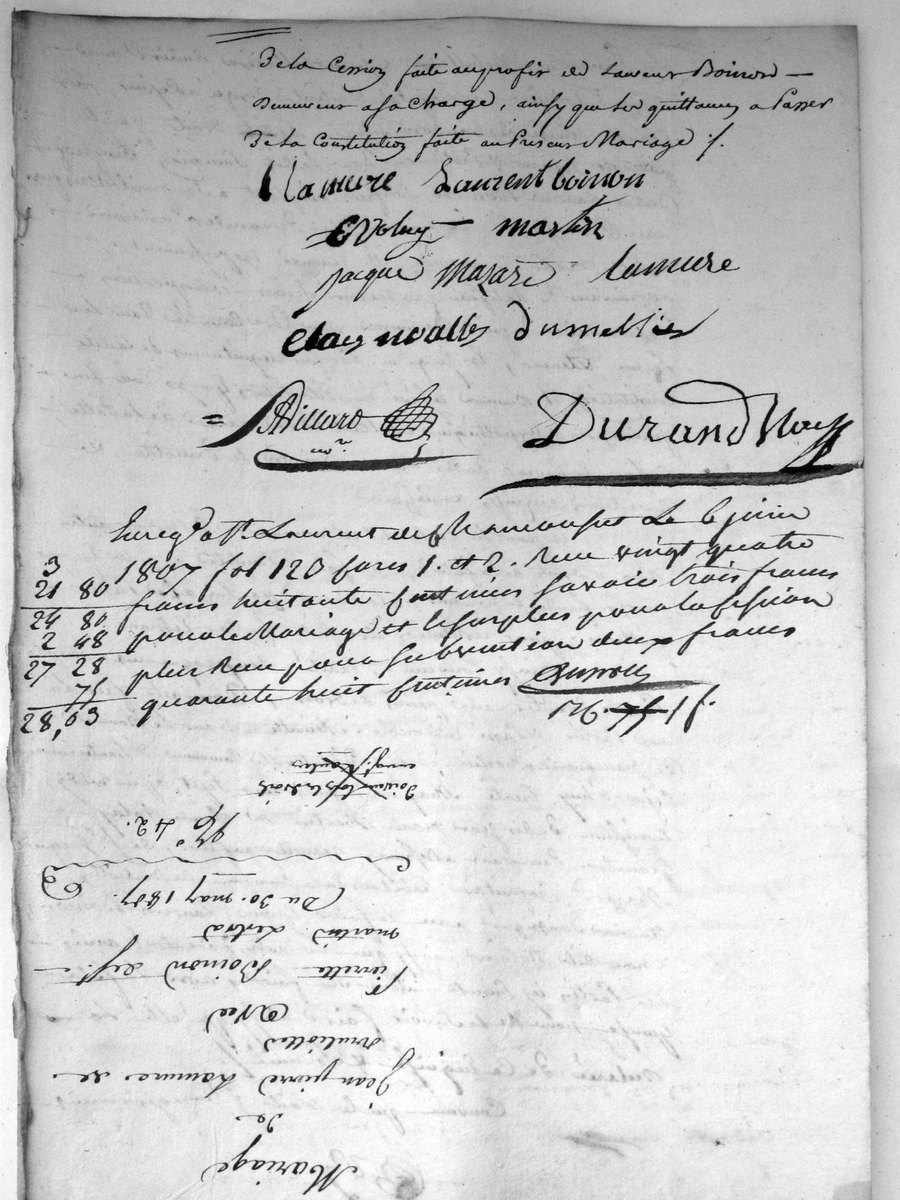 De la Cession faite au profit de Laurent Boinon
Demeureront a sa Charge, ainsy que les quittances a Passer
De la Constitution faite au Present Mariage ./.
lamure Laurent boinon
martin
jacque Mazard lamure
noally Dumellier
Villard
nore
Durand Nore
Enregé a St. Laurent de Chamousset Le 6 juin
1807 fol 120 cases 1. et 2. Reçu vingt quatre
francs huitante centimes savoir trois francs
pour le Mariage et le surplus pour la Cession
plus Reçu pour Subvention deux francs
quarante huit centimes
3
21 80
24 80
2 48
27 28
75
28,03
Mariage
de
Jean pierre Lamure de
Avec
Pierrette Boinon de St.
martin Lestra
Du 30. may 1807.
No 42.